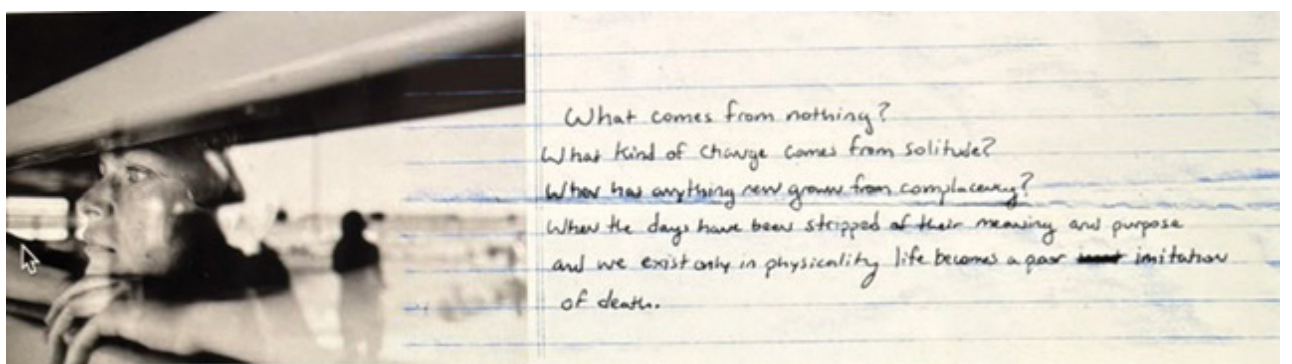 What comes from nothing?
What kind of change comes from solitude?
When has anything new grown from complacency?
When the days have been stripped of their meaning and purpose
and we exist only in physicality life becomes a poor imitation
of death.